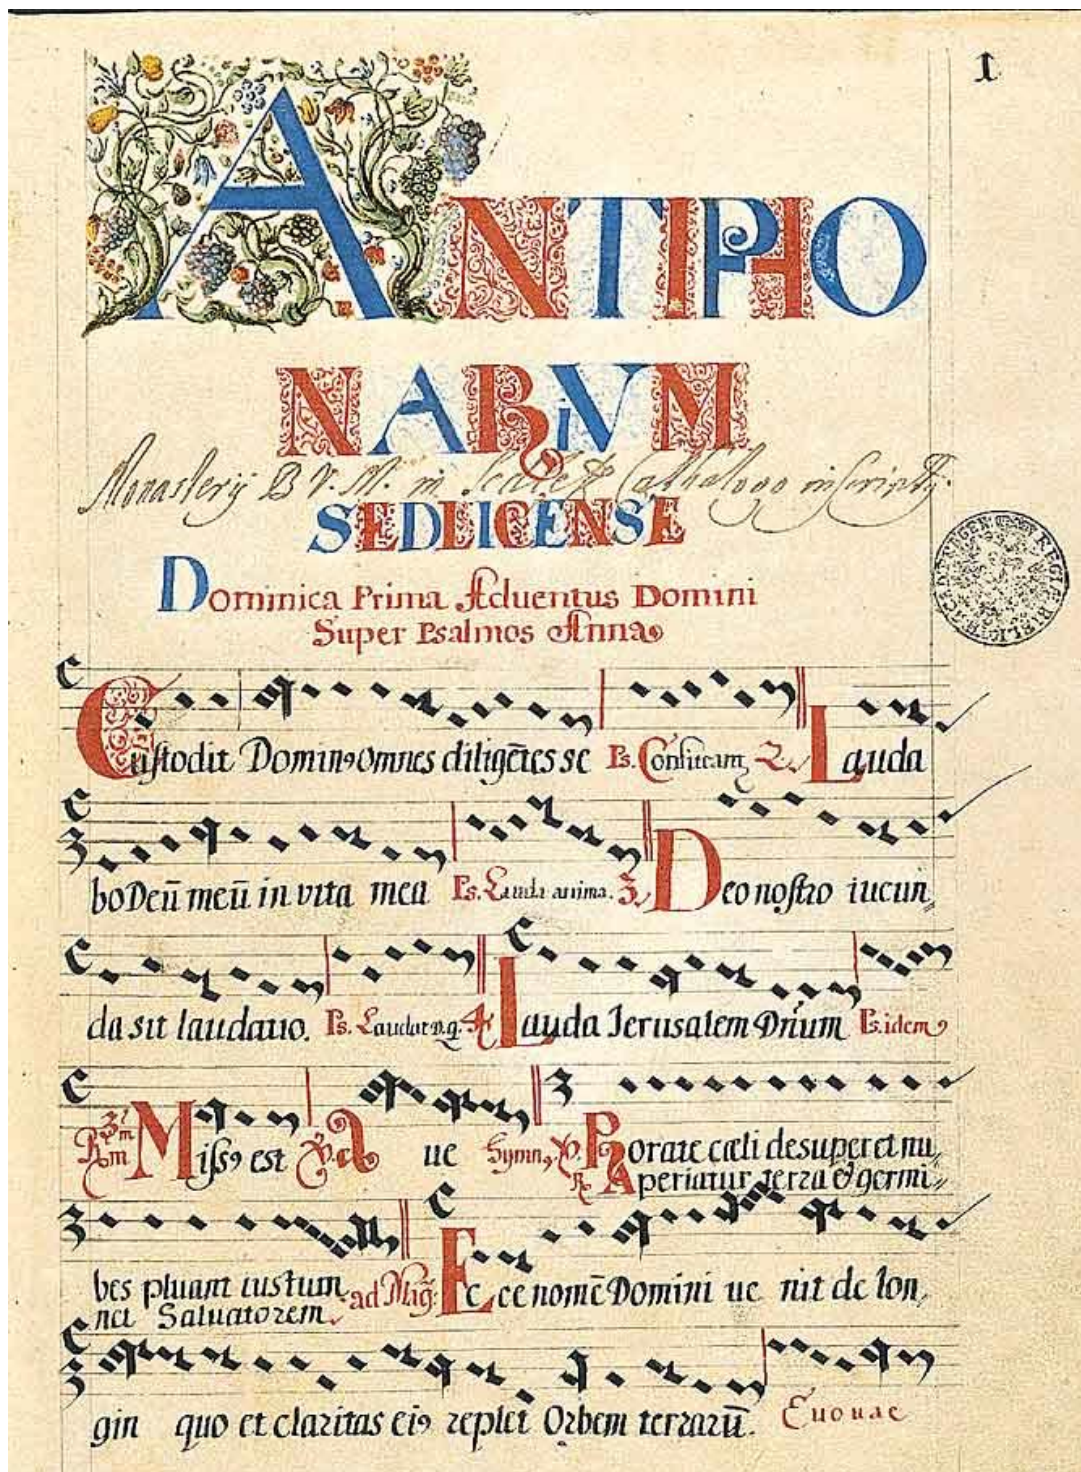 1
ANTIPHO
NARIVM
Monasterij B V. M. in Cathalogo inscripti.
SEDLICENSE
Dominica Prima Aduentus Domini
Super Psalmos Annaꝯ
Custodit Dominꝯ omnes diligētes se Ps. Lauda
bo Deū meū in vita mea Ps. Lauda anima. 3. Deo nostro iucun
da sit laudatio. Ps. Laudate D. q. 4 Lauda Jerusalem Dn̄um Ps. idem
Missꝯ est ℣. Aue Hymnꝯ ℣. Rorate cæli desuper et nu
℟ Aperiatur terra & germi
bes pluant iustum ad Mag: Ecce nomē Domini ue nit de lon
net Saluatorem
gin quo et claritas eiꝯ replet Orbem terrarū. Euouae